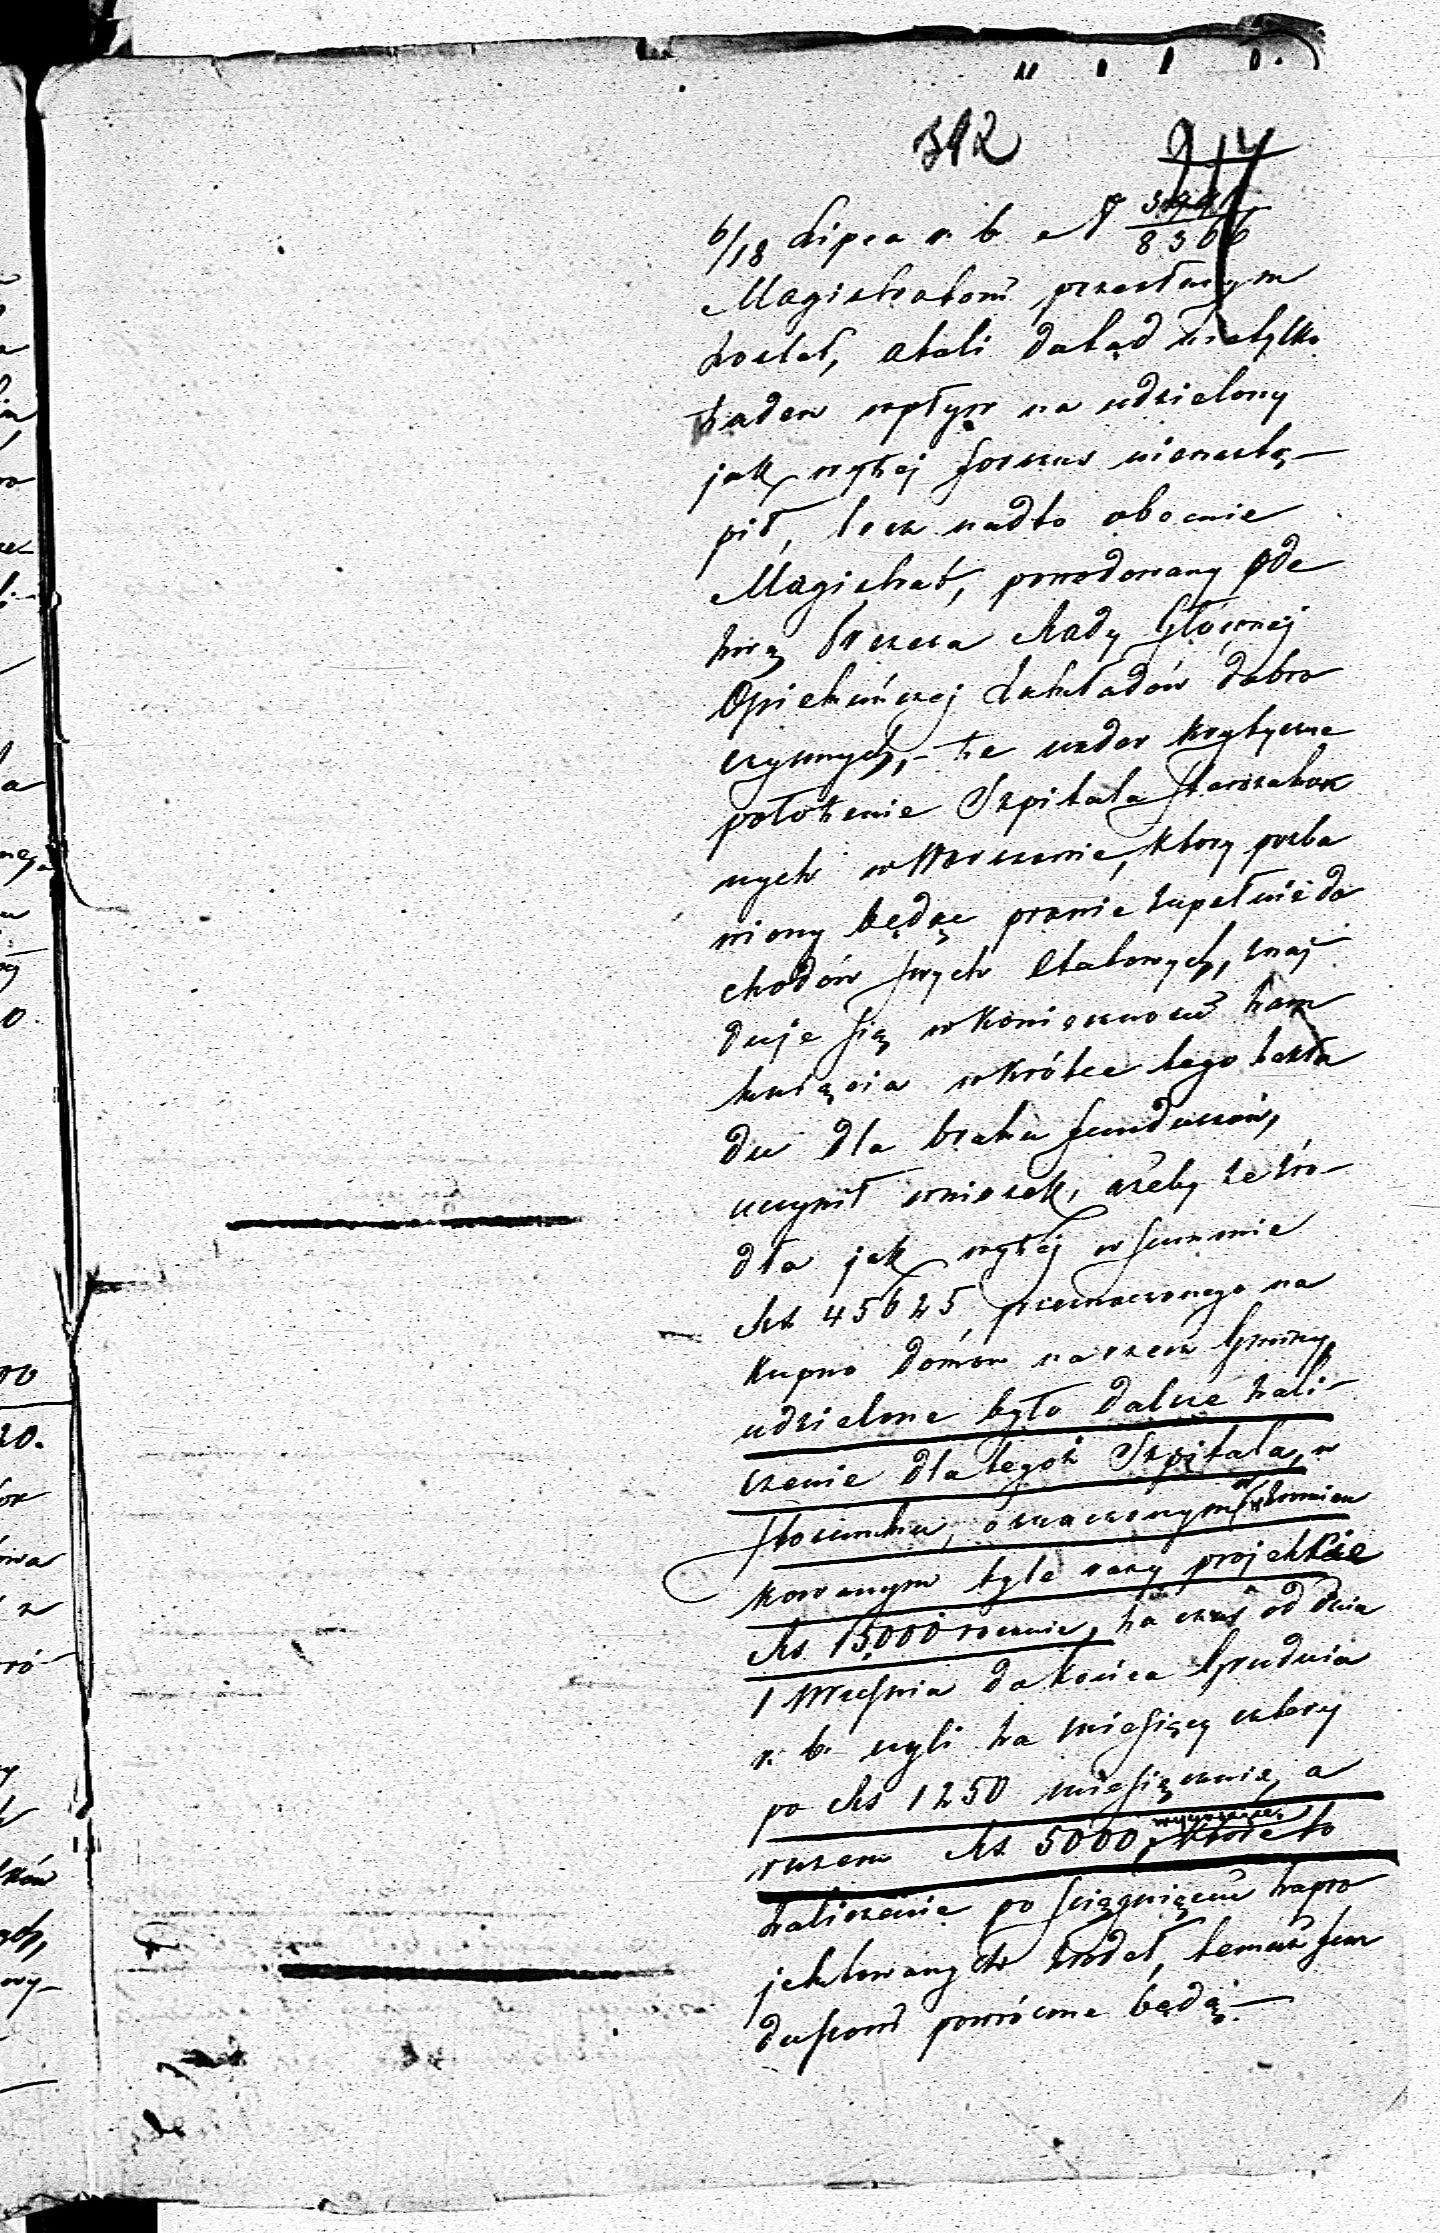 312
6/18 Lipca r. b. N° 3991/8366
Magistratowi przesłanym
został, atoli dotąd nietylko
żaden wpływ na udzielony
jak wyżej forszus nienastą-
pił, lecz nadto obecnie
Magistrat, powodowany ode
zwą Prezesa Rady Głównej
Opiekuńczej Zakładów dobro
czynnych, - że nader krytyczne
położenie Szpitala Starozakon
nych w Warszawie, który pozba
wiony będąc prawie zupełnie do
chodów swych etatowych, znaj
duje się w konieczności zam
knięcia wkrótce tego zakła
du dla braku funduszów,
uczynił wniosek, ażeby ze źró-
dła jak wyżej w summie
Rs 45625 przeznaczonego na
kupno domów na rzecz Gminy,
udzielone było dalsze zali-
czenie dla tegoż Szpitala, w
stosunku, oznaczonym w
kowanym tyle razy projekcie
Rs 15000 rocznie, za czas od dnia
1 Września do końca Grudnia
r. b. czyli za miesięcy cztery
po Rs 1250 miesięcznie, a
razem Rs 5000, które to
zaliczenie po ściągnięciu zapro
jektowanych źródeł, temuż fun
duszowi powrócone będą.-